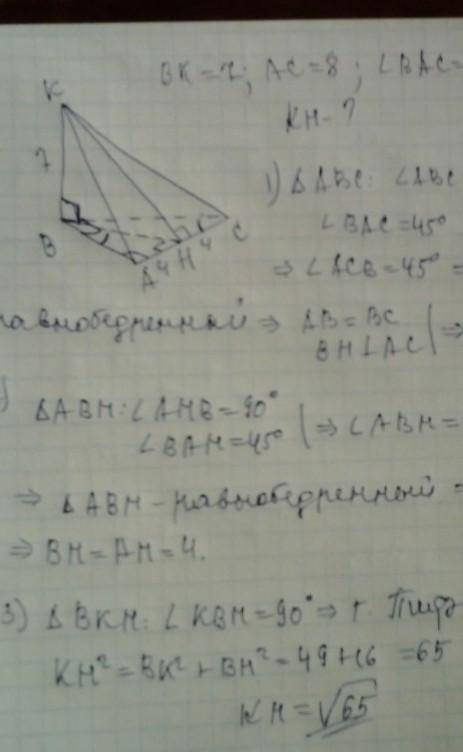 BK = 7; AC = 8; ∠BAC =
KH - ?
K
7
B
A
4
H
4
C
1) ΔABC: ∠ABC
∠BAC = 45°
⇒ ∠ACB = 45° =
равнобедренный ⇒ AB = BC
BH ⊥ AC | ⇒
) ΔABH: ∠AHB = 90°
∠BAH = 45° | ⇒ ∠ABH =
⇒ ΔABH - равнобедренный =
⇒ BH = AH = 4.
3) ΔBKH: ∠KBH = 90° ⇒ т. Пифа
KH² = BK² + BH² = 49 + 16 = 65
KH = √65